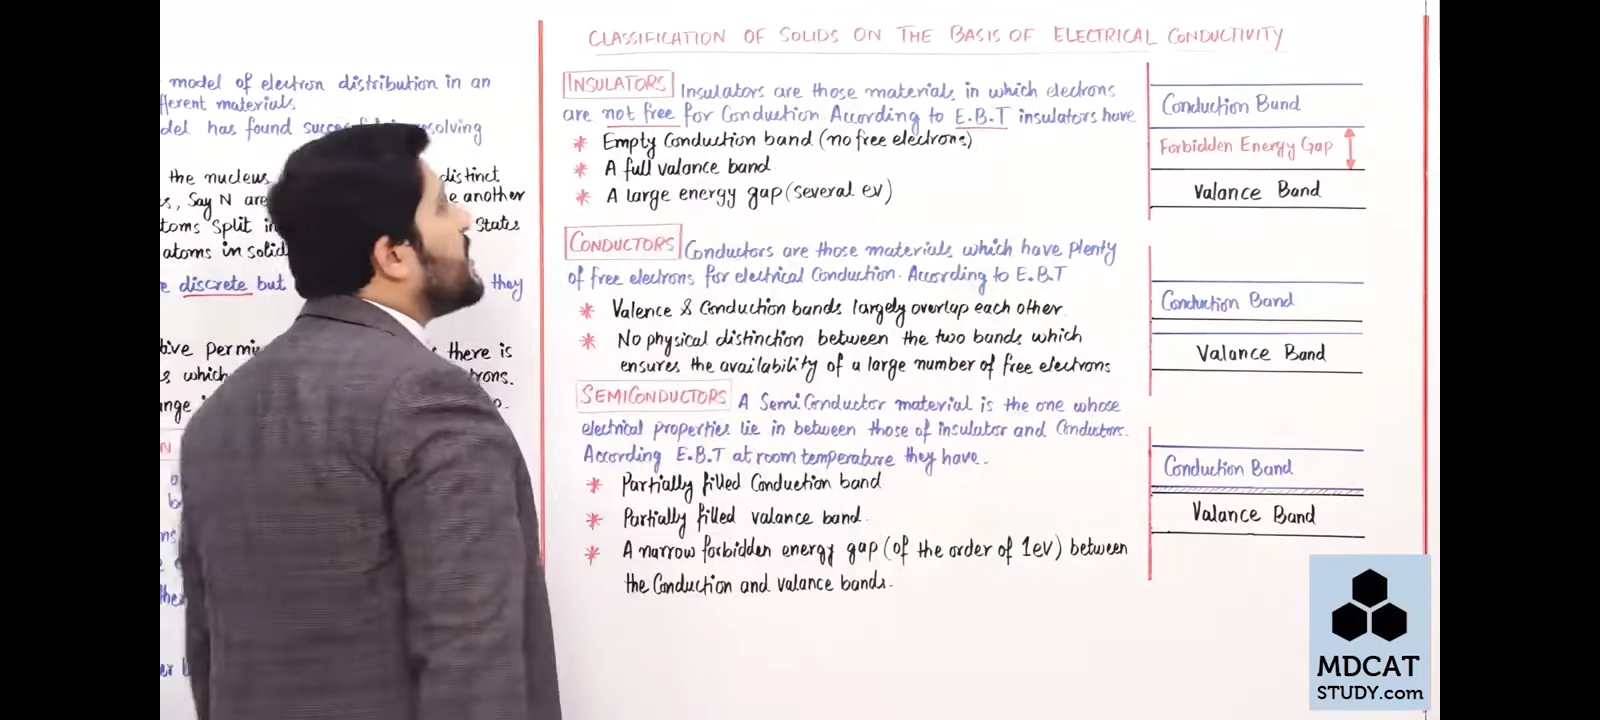 CLASSIFICATION OF SOLIDS ON THE BASIS OF ELECTRICAL CONDUCTIVITY
model of electron distribution in an
fferent materials
del has found resolving
the nucleus distinct
Say N are another
toms Split in States
atoms in solid
e discrete but they
tive Permi there is
s which trons.
nge
INSULATORS Insulators are those materials in which electrons
are not free for Conduction. According to E.B.T insulators have
* Empty Conduction band (no free electrons)
* A full valance band
* A large energy gap (several ev)
CONDUCTORS Conductors are those materials which have plenty
of free electrons for electrical Conduction. According to E.B.T
* Valence & Conduction bands largely overlap each other.
* No physical distinction between the two bands which
ensures the availability of a large number of free electrons
SEMICONDUCTORS A SemiConductor material is the one whose
electrical properties lie in between those of insulator and Conductors.
According E.B.T at room temperature they have.
* Partially filled Conduction band
* Partially filled valance band.
* A narrow forbidden energy gap (of the order of 1ev) between
the Conduction and valance bands.
Conduction Band
Forbidden Energy Gap
Valance Band
Conduction Band
Valance Band
Conduction Band
Valance Band
MDCAT
STUDY.com